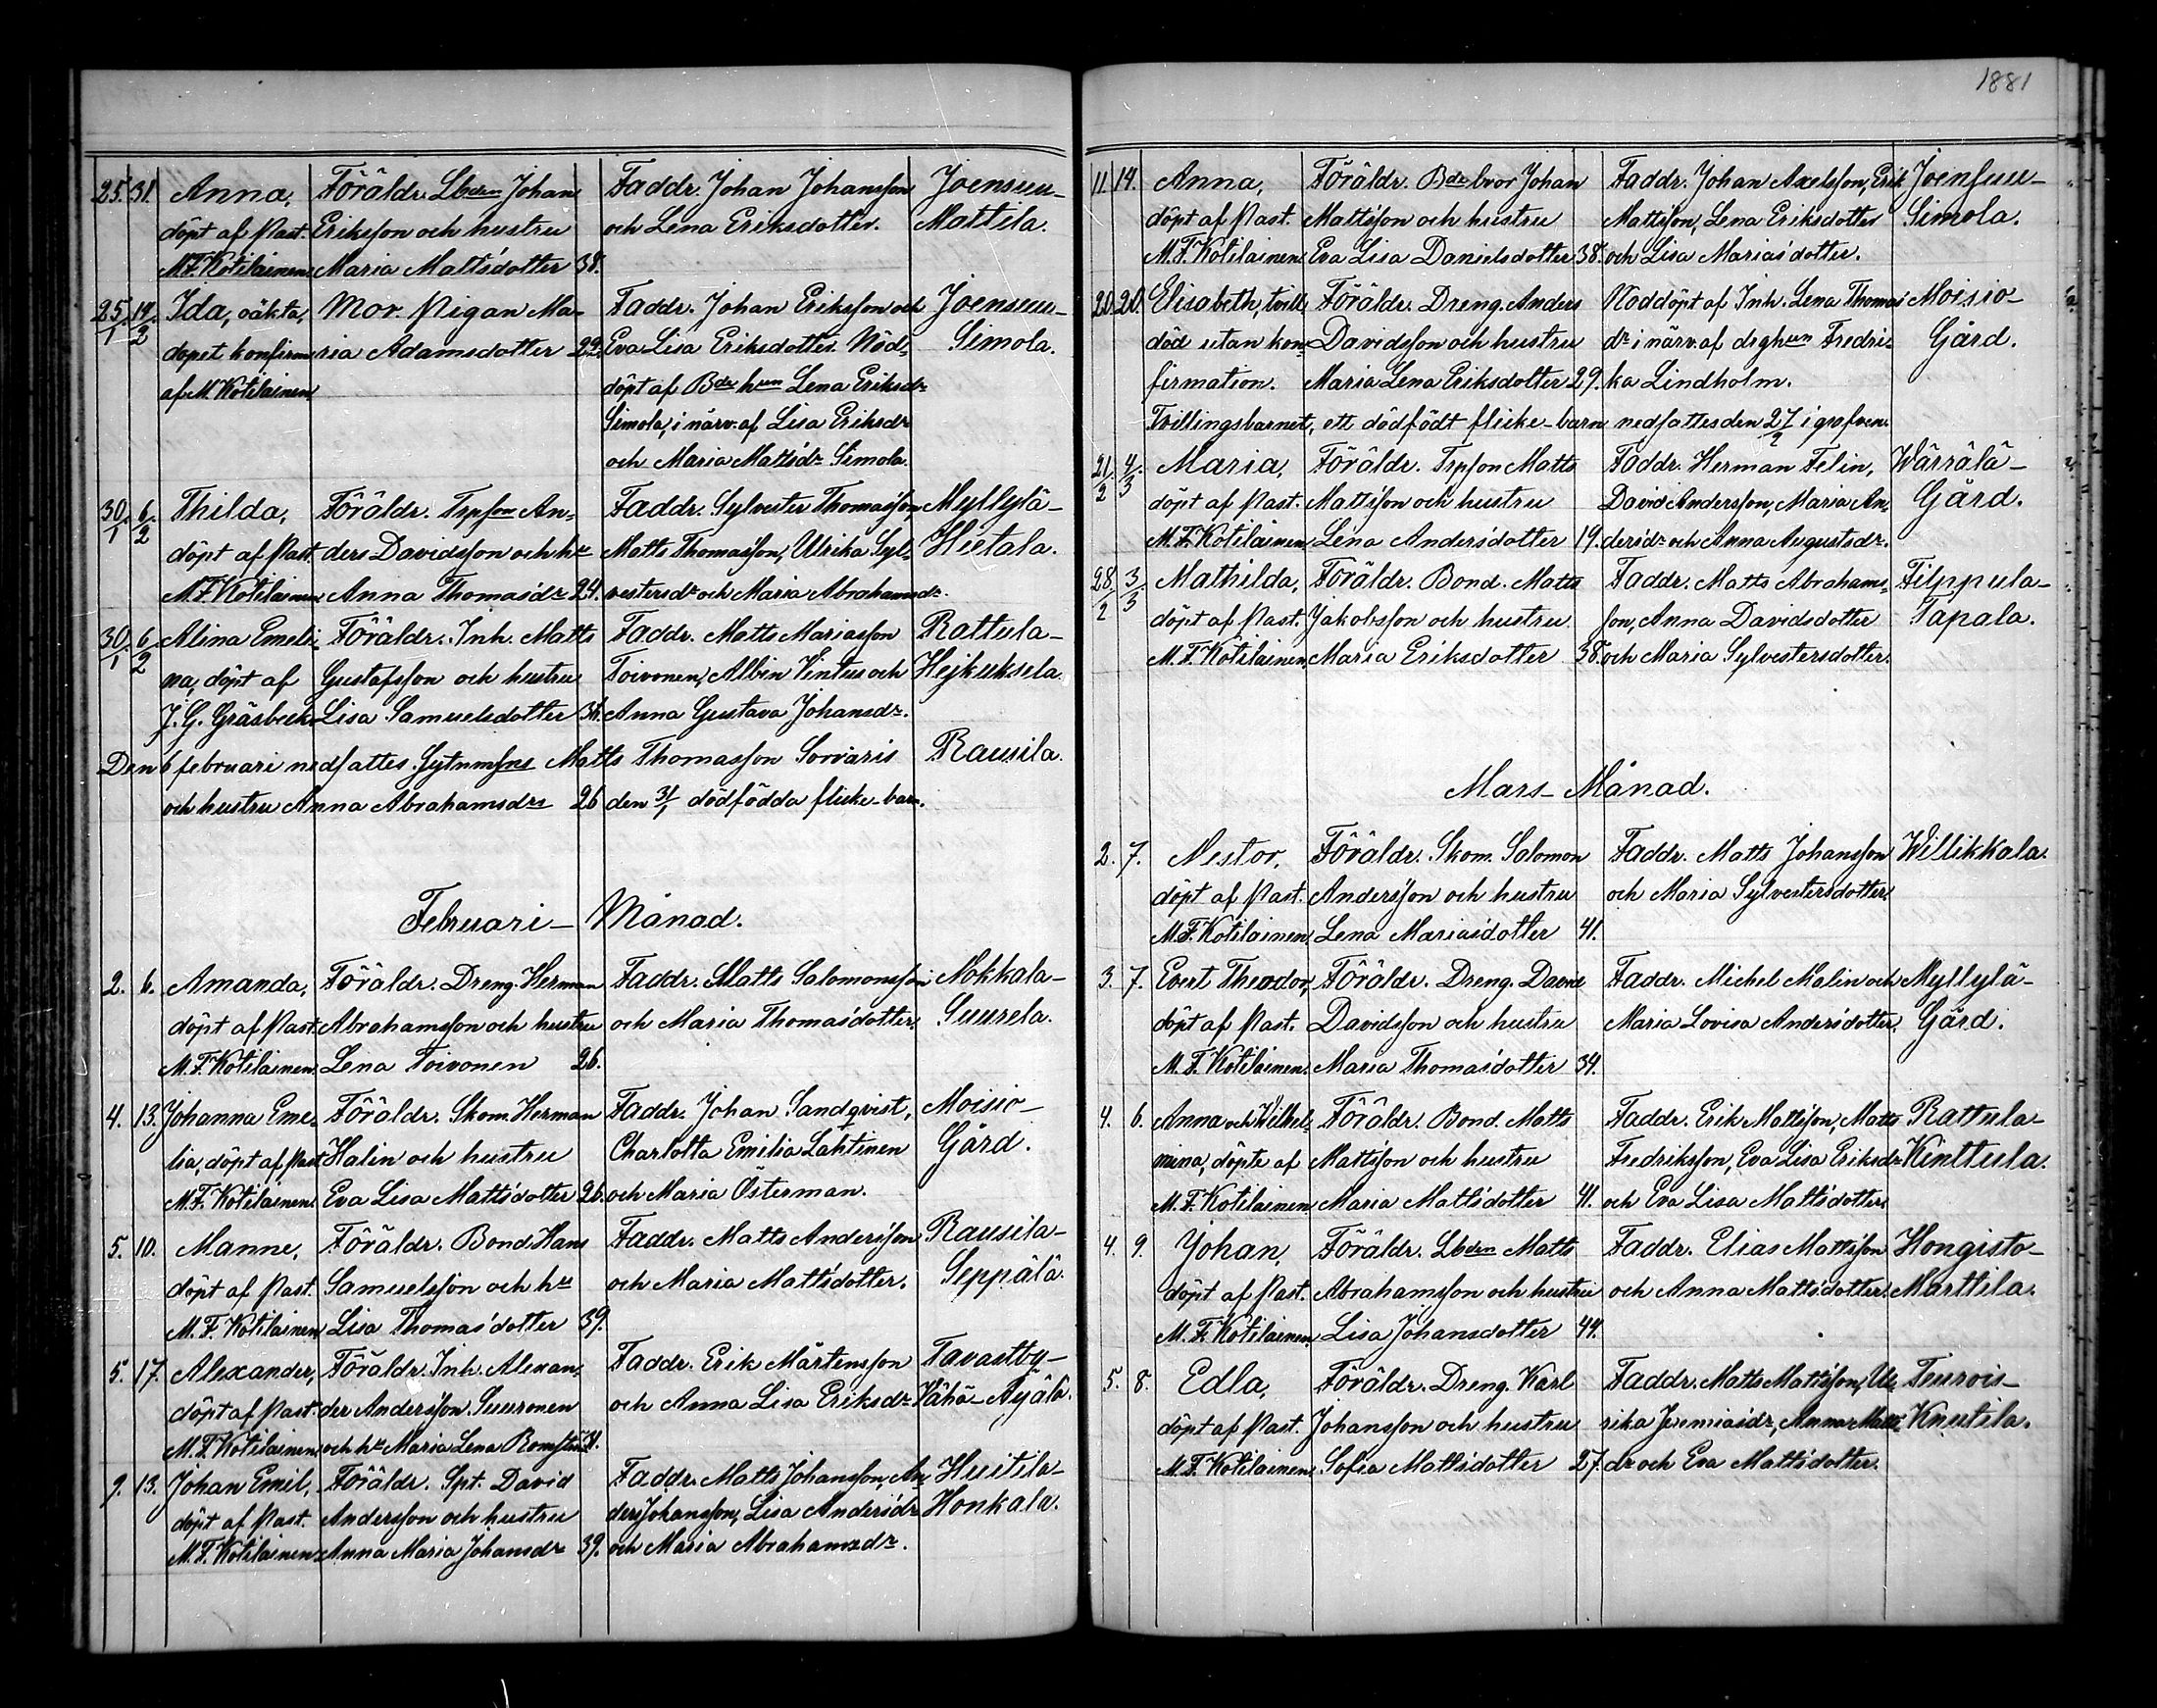 1881
25. 31. Anna, Föräldr. Lbdrn Johan Faddr. Johan Johansson Joensuu-
döpt af Past. Eriksson och hustru och Lena Eriksdotter. Mattila.
M.F. Kotilainen Maria Mattsdotter 38.
25/1 14/2 Ida, oäkta, Mor. Pigan Ma- Faddr. Johan Eriksson och Joensuu-
dopet konfirm ria Adamsdotter 22. Eva Lisa Eriksdotter. Nöd- Simola.
af M. Kotilainen döpt af Bde hun Lena Eriksdr
Simola, i närv. af Lisa Eriksdr
och Maria Mattsdr Simola.
30/1 6/2 Thilda, Föräldr. Trpson An- Faddr. Sylvester Thomasson, Myllylä-
döpt af Past. ders Davidsson och hu Matts Thomasson, Ulrika Syl- Hietala.
M.F. Kotilainen Anna Thomasdr 24. vestersdr och Maria Abrahamsdr.
30/1 6/2 Alina Emeli- Föräldr. Inh. Matts Faddr. Matts Mariasson Rattula-
na, döpt af Gustafsson och hustru Toivonen, Albin Vintus och Hejkuksela.
J.G. Gräsbeck Lisa Samuelsdotter 36. Anna Gustava Johansdr.
Den 6 februari nedsattes Matts Thomasson Sorvaris Rausila.
och hustru Anna Abrahamsdrs 26 den 31/1 dödfödda flicke-barn.
Februari- Månad.
2. 6. Amanda, Föräldr. Dreng. Herman Faddr. Matts Salomonsson Nokkala-
döpt af Past. Abrahamsson och hustru och Maria Thomasdotter. Suurela.
M.F. Kotilainen. Lena Toivonen 26.
4. 13. Johanna Eme- Föräldr. Skom. Herman Faddr. Johan Sandqvist, Moisio-
lia, döpt af Past Halin och hustru Charlotta Emilia Lahtinen Gård.
M.F. Kotilainen. Eva Lisa Mattsdotter 26. och Maria Österman.
5. 10. Manne, Föräldr. Bond. Hans Faddr. Matts Andersson Rausila-
döpt af Past. Samuelsson och hu och Maria Mattsdotter. Seppälä.
M.F. Kotilainen Lisa Thomasdotter 39.
5. 17. Alexander, Föräldr. Inh. Alexan- Faddr. Erik Mårtensson Tavastby-
döpt af Past. der Andersson Suuronen och Anna Lisa Eriksdr Vähä-Äijälä.
M.F. Kotilainen och hu Maria Lena
9. 13. Johan Emil, Föräldr. Spt. David Faddr. Matts Johansson, An- Huitila-
döpt af Past. Andersson och hustru ders Johansson, Lisa Andersdr Honkala.
M.F. Kotilainen Anna Maria Johansdr 39. och Maria Abrahamsdr.
11. 14. Anna, Föräldr. Bde bror Johan Faddr. Johan Axelsson, Erik Joensuu-
döpt af Past. Mattsson och hustru Mattsson, Lena Eriksdotter Simola.
M.F. Kotilainen Eva Lisa Danielsdotter 38. och Lisa Mariasdotter.
20. 20. Elisabeth, tvill, Föräldr. Dreng. Anders Nöddöpt af Inh. Lena Thomas Moisio-
död utan kon- Davidsson och hustru dr i närv. af drghun Fredri- Gård.
firmation. Maria Lena Eriksdotter 29. ka Lindholm.
Tvillingsbarnet, ett dödfödt flicke-barn nedsattes den 27/2 i grafven.
21/2 4/3 Maria, Föräldr. Trpson Matts Faddr. Herman Felin, Wärrälä-
döpt af Past. Mattsson och hustru David Andersson, Maria An- Gård.
M.F. Kotilainen Lena Andersdotter 19. dersdr och Anna Augustsdr.
28/2 3/3 Mathilda, Föräldr. Bond. Matts Faddr. Matts Abrahams- Filppula-
döpt af Past. Jakobsson och hustru son, Anna Davidsdotter Tapala.
M.F. Kotilainen. Maria Eriksdotter 38. och Maria Sylvestersdotter.
Mars- Månad.
2. 7. Nestor, Föräldr. Skom. Salomon Faddr. Matts Johansson Willikkala.
döpt af Past. Andersson och hustru och Maria Sylvestersdotter.
M.F. Kotilainen. Lena Mariasdotter 41.
3. 7. Evert Theodor, Föräldr. Dreng. David Faddr. Michel Malin och Myllylä-
döpt af Past. Davidsson och hustru Maria Lovisa Andersdotter. Gård.
M.F. Kotilainen. Maria Thomasdotter 34.
4. 6. Anna och Wilhel- Föräldr. Bond. Matts Faddr. Erik Mattsson, Matts Rattula-
mina, döpte af Mattsson och hustru Fredriksson, Eva Lisa Eriksdr Kinttula.
M.F. Kotilainen Maria Mattsdotter 41. och Eva Lisa Mattsdotter.
4. 9. Johan, Föräldr. Lbden Matts Faddr. Elias Mattsson Hongisto-
döpt af Past. Abrahamsson och hustru och Anna Mattsdotter. Marttila.
M.F. Kotilainen. Lisa Johansdotter 44.
5. 8. Edla, Föräldr. Dreng. Karl Faddr. Matts Mattsson, Ul- Teurois-
döpt af Past. Johansson och hustru rika Jeremiasdr, Anna Matts- Knutila.
M.F. Kotilainen Sofia Mattsdotter 27. dr och Eva Mattsdotter.